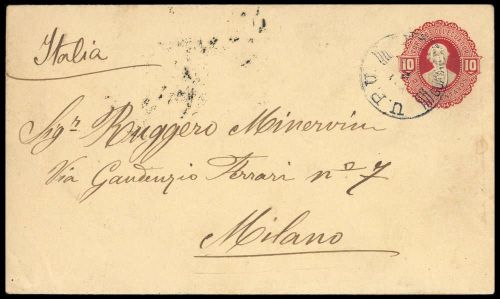 Italia
10 10
U.P.U.
Sigr Ruggero Minervini
Via Gaudenzio Ferrari no 7
Milano